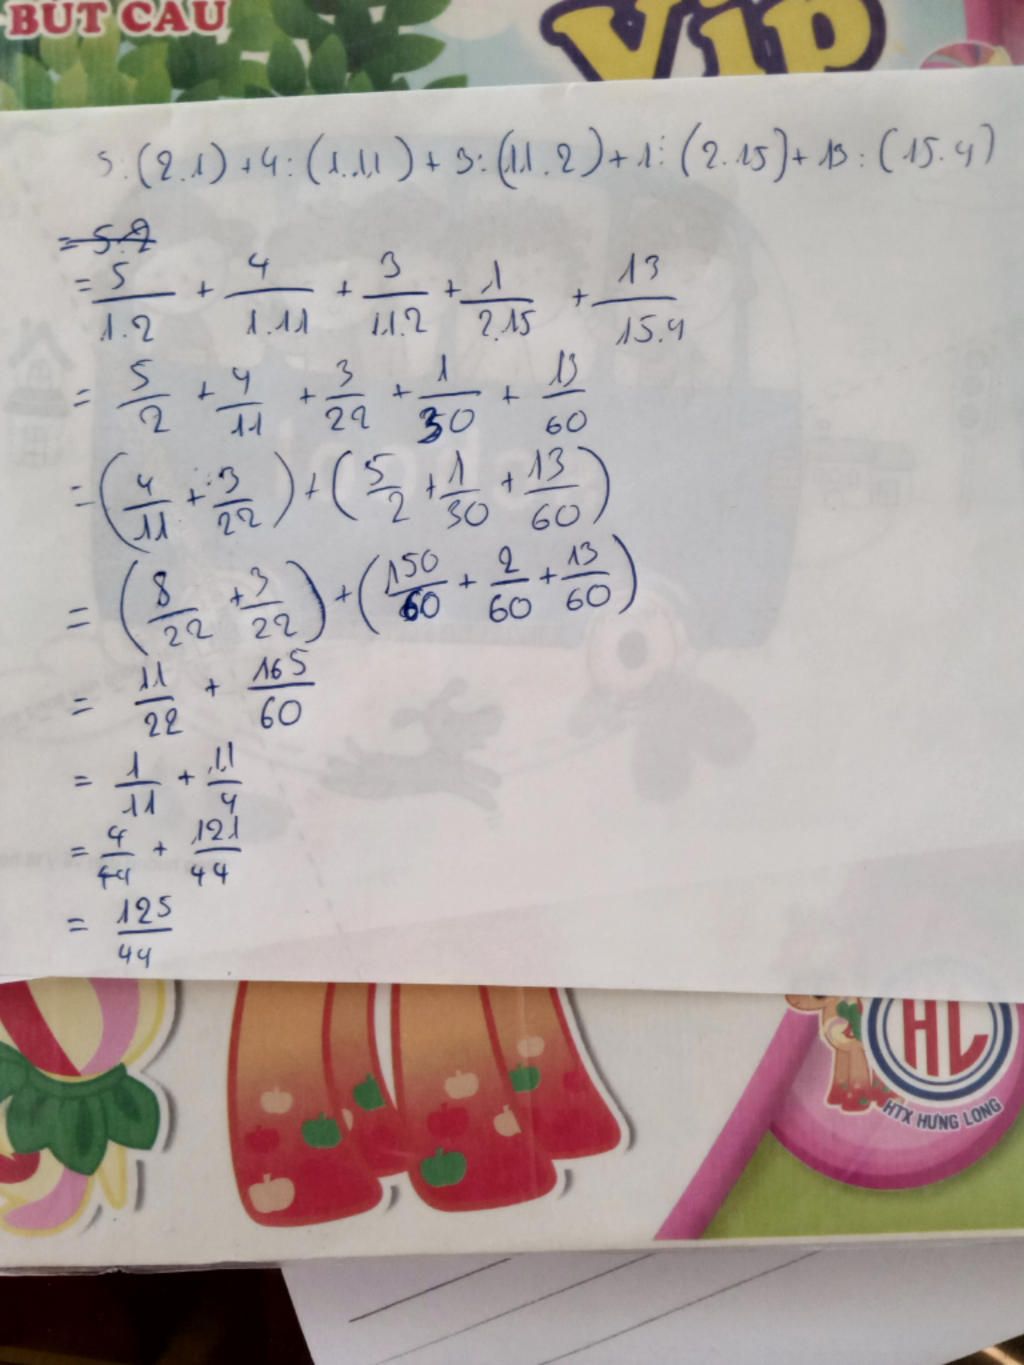 BÚT CẦU
Vip
5:(2.1)+4:(1.11)+3:(11.2)+1:(2.15)+13:(15.4)
= 5.2
= 5/1.2 + 4/1.11 + 3/11.2 + 1/2.15 + 13/15.4
= 5/2 + 4/11 + 3/22 + 1/30 + 13/60
= (4/11 + 3/22) + (5/2 + 1/30 + 13/60)
= (8/22 + 3/22) + (150/60 + 2/60 + 13/60)
= 11/22 + 165/60
= 1/11 + 11/4
= 4/44 + 121/44
= 125/44
HL
HTX HƯNG LONG